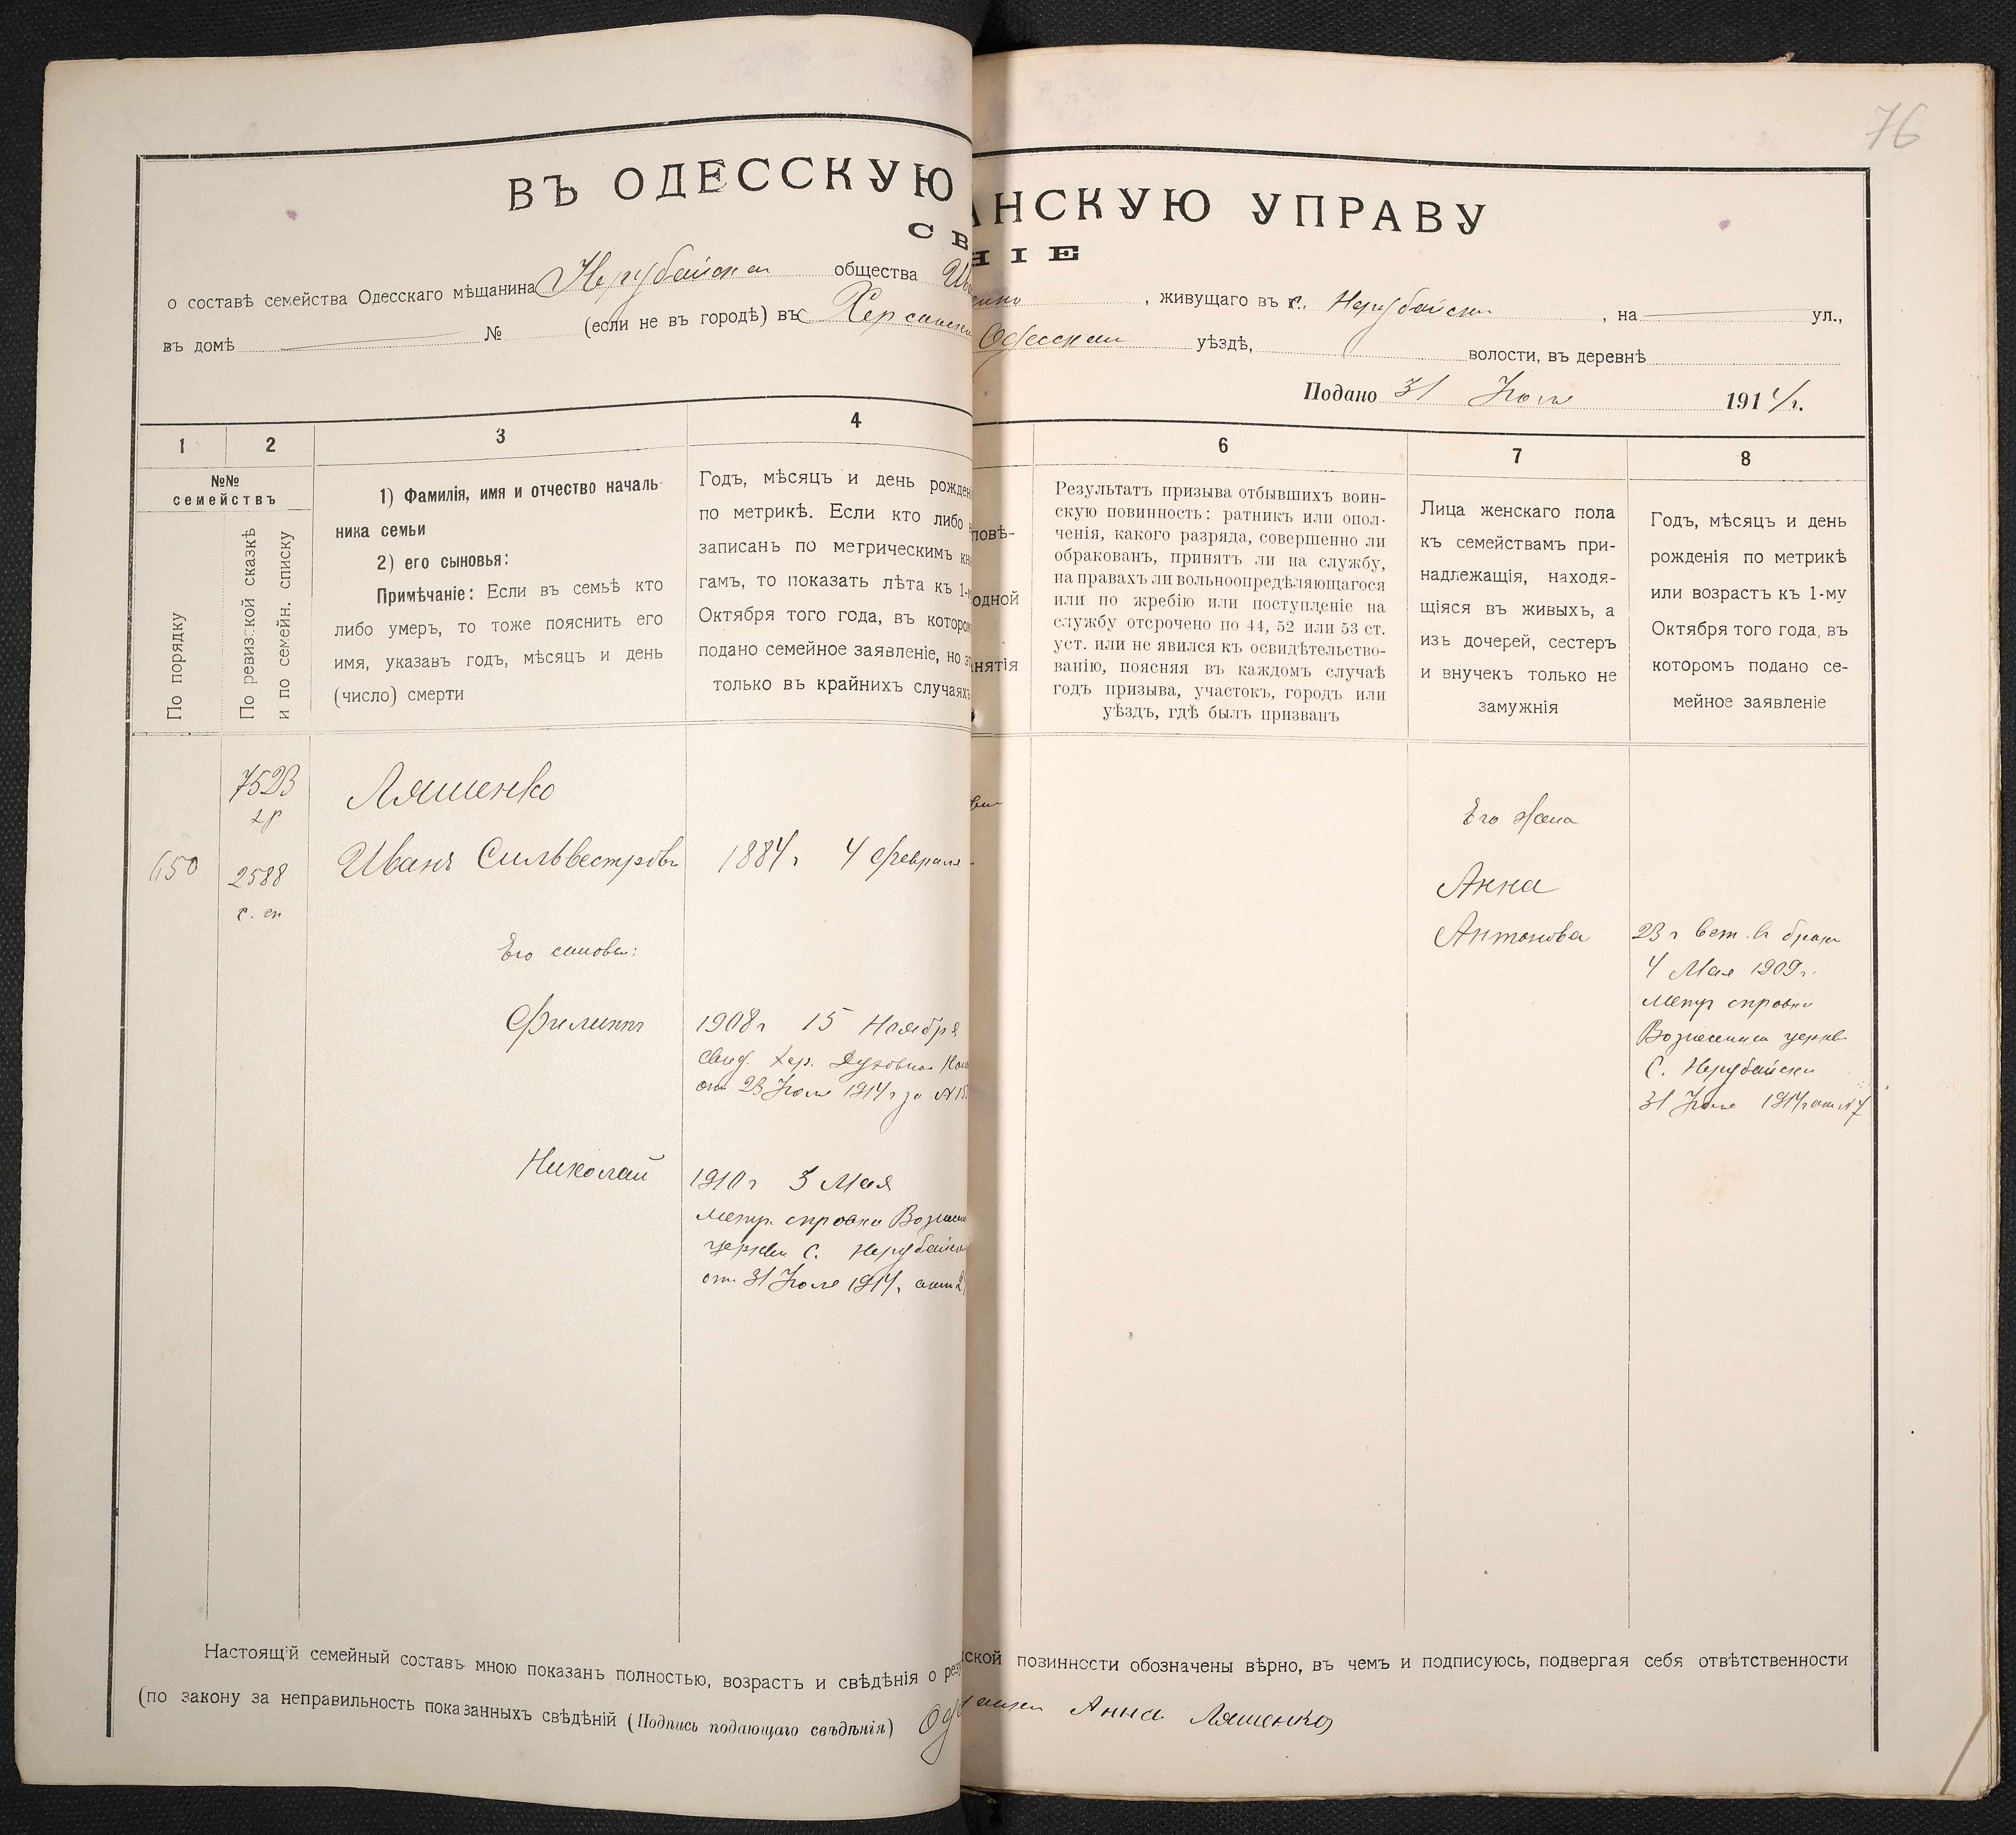 76
ВЪ ОДЕССКУЮ АНСКУЮ УПРАВУ
СВ НІЕ
о составѣ семейства Одесскаго мѣщанина Нерубайскаго общества , живущаго въ с. Нерубайскомъ , на ул.,
въ домѣ № (если не въ городѣ) въ Херсонской Одесскомъ уѣздѣ, волости, въ деревнѣ
Подано 31 Іюля 1914 г.
1 2 3 4 6 7 8
№№
семействъ
По порядку
По ревизской сказкѣ
и по семейн. списку
1) Фамилія, имя и отчество началь-
ника семьи
2) его сыновья:
Примѣчаніе: Если въ семьѣ кто
либо умеръ, то тоже пояснить его
имя, указавъ годъ, мѣсяцъ и день
(число) смерти
Годъ, мѣсяцъ и день рожден
по метрикѣ. Если кто либо н
записанъ по метрическимъ кн
гамъ, то показать лѣта къ 1-м
Октября того года, въ которо
подано семейное заявленіе, но э
только въ крайнихъ случаяхъ
повѣ-
одной
нятія
Результатъ призыва отбывшихъ воин-
скую повинность: ратникъ или опол-
ченія, какого разряда, совершенно ли
обракованъ, принятъ ли на службу,
на правахъ ли вольноопредѣляющагося
или по жребію или поступленіе на
службу отсрочено по 44, 52 или 53 ст.
уст. или не явился къ освидѣтельство-
ванію, поясняя въ каждомъ случаѣ
годъ призыва, участокъ, городъ или
уѣздъ, гдѣ былъ призванъ
Лица женскаго пола
къ семействамъ при-
надлежащія, находя-
щіяся въ живыхъ, а
изъ дочерей, сестеръ
и внучекъ только не
замужнія
Годъ, мѣсяцъ и день
рожденія по метрикѣ
или возрастъ къ 1-му
Октября того года, въ
которомъ подано се-
мейное заявленіе
7523
Ляшенко
Его жена
650
2588
с. сп
Иванъ Сильвестровъ
1884 г 4 февраля
Анна
Антонова
23 г вст. въ бракъ
4 Мая 1909 г.
Метр справка
Вознесенск церкв
С. Нерубайска
31 Іюля 1914 г от №7
Его сыновья:
Филиппъ
1908 г 15 Ноября
Свид. Хер. Духовной Кон
отъ 23 Іюля 1914 г за №
Николай
1910 г 3 Мая
Метр. справка Вознесен
церкви С. Нерубайска
от 31 Іюля 1914 г.
Настоящій семейный составъ мною показанъ полностью, возрастъ и свѣдѣнія о рез ской повинности обозначены вѣрно, въ чемъ и подписуюсь, подвергая себя отвѣтственности
(по закону за неправильность показанныхъ свѣдѣній (Подпись подающаго свѣдѣнія) Анна Ляшенко